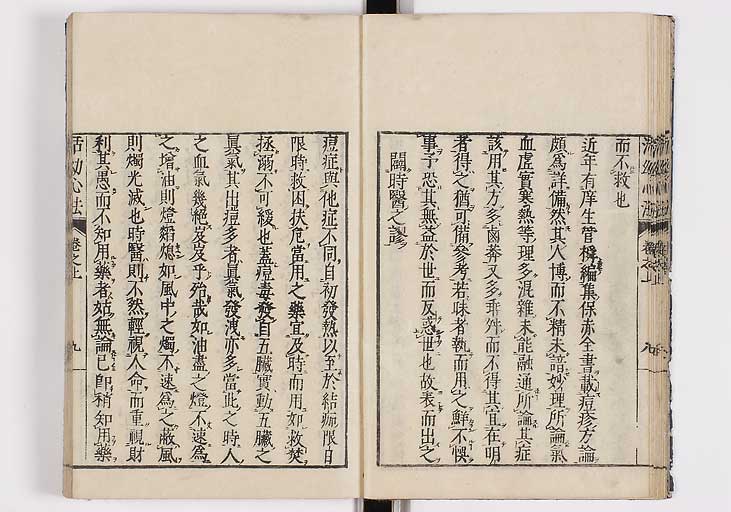 而不救也
近年有庠生管橓編集保赤全書載痘疹方論
頗爲詳備然其人博而不精未諳妙理所論氣
血虛實寒熱等理多混雜未能融通所論其症
該用其方多鹵莽又多乖舛而不得其宜在明
者得之猶可備參考若昧者執而用之鮮不悞
事予恐其無益於世而反惑世也故表而出之
闢時醫之謬
痘症與他症不同自初發熱以至於結痂限日
限時救困扶危當用之藥宜及時而用如救焚
拯溺不可緩也蓋痘毒發自五臟實動五臟之
眞氣其出痘多者眞氣發洩亦多當此之時人
之血氣幾絕岌岌乎殆哉如油盡之燈不速爲
之增油則燈熄如風中之燭不速爲之蔽風
則燭光滅也時醫則不然輕視人命而重視財
利其愚而不知用藥者姑無論已即稍知用藥
活幼心法
卷之上
九